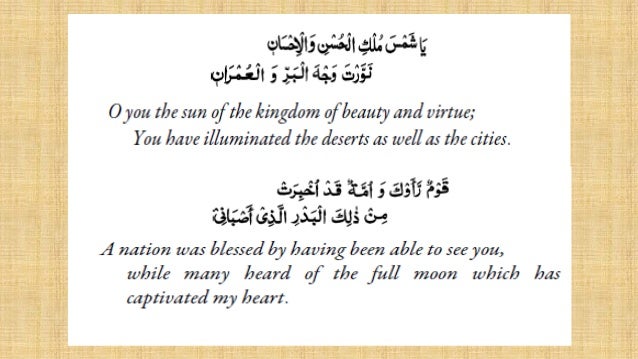 يَا شَمْسَ مُلْكِ الْحُسْنِ وَالْإِحْسَانِ
نَوَّرْتَ وَجْهَ الْبَرِّ وَ الْعُمْرَانِ
O you the sun of the kingdom of beauty and virtue;
You have illuminated the deserts as well as the cities.
قَوْمٌ رَّأَوْكَ وَ اُمَّةٌ قَدْ اُخْبِرَتْ
مِنْ ذٰلِكَ الْبَدْرِ الَّذِىْ أَصْبَانِىْ
A nation was blessed by having been able to see you,
while many heard of the full moon which has
captivated my heart.